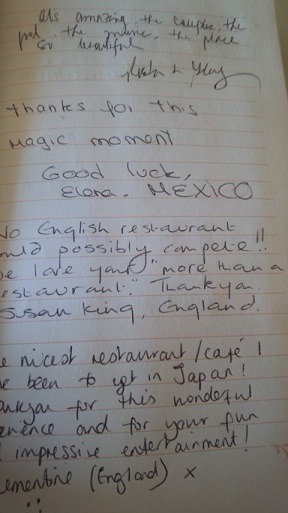 its amazing, the couple, the
the music, the place
so beautiful
Thanks for this
Magic moment
Good luck,
Elena. MEXICO
No English restaurant
possibly compete!!
love your "more than a
restaurant." Thankyou.
Susan King, England.
nicest restaurant/café I
been to yet in Japan!
for this wonderful
and for your fun
impressive entertainment!
(England) x